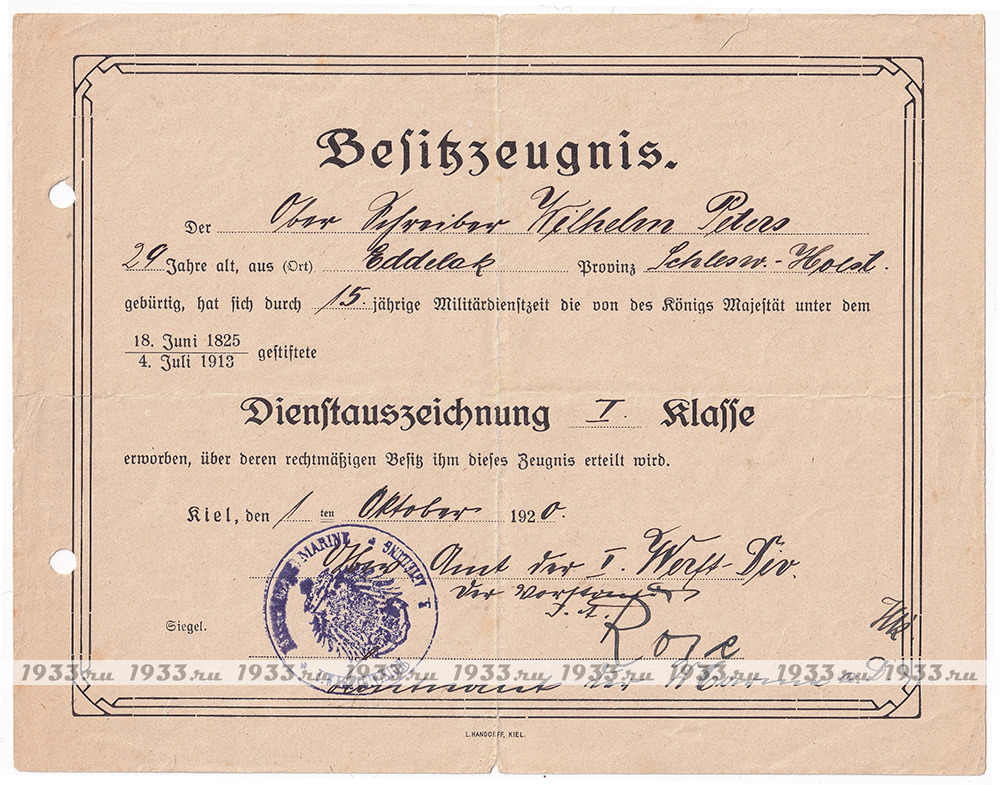 Besitzzeugnis.
Der Ober Schreiber Wilhelm Peters
29 Jahre alt, aus (Ort) Eddelak Provinz Schlesw.-Holst.
gebürtig, hat sich durch 15. jährige Militärdienstzeit die von des Königs Majestät unter dem
18. Juni 1825
4. Juli 1913
gestiftete
Dienstauszeichnung I. Klasse
erworben, über deren rechtmäßigen Besitz ihm dieses Zeugnis erteilt wird.
Kiel, den 1 ten Oktober 1920.
MARINE ABTEILUNG
Ober Amt der I. Werft Div.
Der Vorstand
I. A.
Rose
Siegel.
1933.ru 1933.ru 1933.ru 1933.ru 1933.ru 1933.ru 1933.ru 1933.ru 1933.ru
Leutnant der Marine a. D.
L. HANDORFF, KIEL.